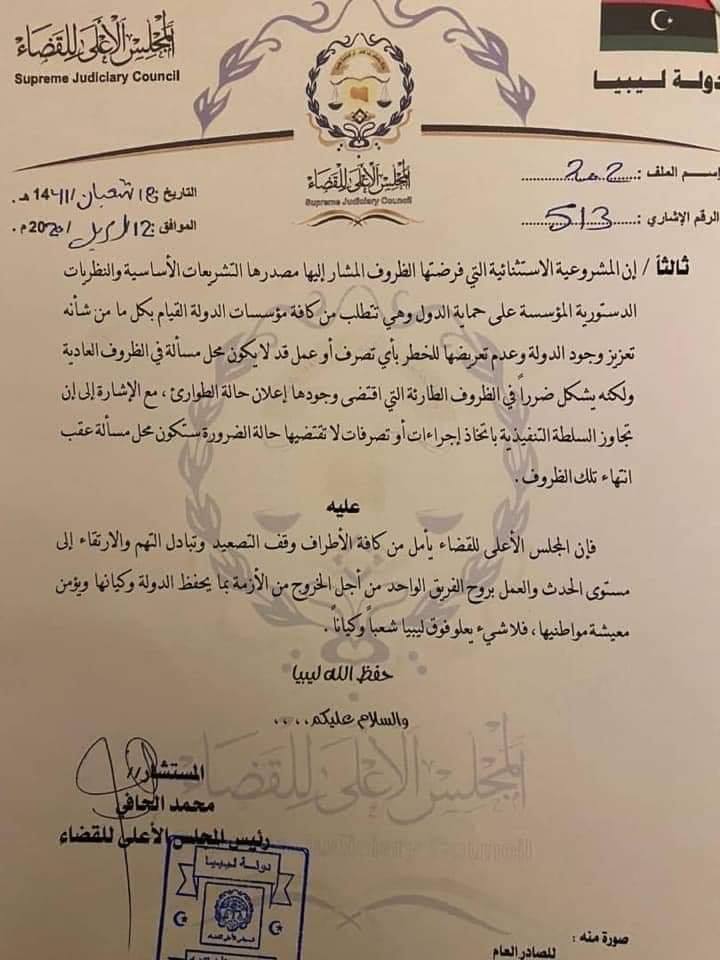 المجلس الأعلى للقضاء
Supreme Judiciary Council
دولة ليبيا
المجلس الأعلى للقضاء
Supreme Judiciary Council
إسم الملف :
الرقم الإشاري : 5/3
التاريخ : 18 شعبان / 1441 هـ .
الموافق : 12 ابريل / 2020 م .
ثالثاً / إن المشروعية الاستثنائية التي فرضتها الظروف المشار إليها مصدرها التشريعات الأساسية والنظريات
الدستورية المؤسسة على حماية الدول وهي تتطلب من كافة مؤسسات الدولة القيام بكل ما من شأنه
تعزيز وجود الدولة وعدم تعريضها للخطر بأي تصرف أو عمل قد لا يكون محل مسألة في الظروف العادية
ولكنه يشكل ضرراً في الظروف الطارئة التي اقتضى وجودها إعلان حالة الطوارئ ، مع الإشارة إلى إن
تجاوز السلطة التنفيذية باتخاذ إجراءات أو تصرفات لا تقتضيها حالة الضرورة ستكون محل مسألة عقب
انتهاء تلك الظروف .
عليه
فإن المجلس الأعلى للقضاء يأمل من كافة الأطراف وقف التصعيد وتبادل التهم والارتقاء إلى
مستوى الحدث والعمل بروح الفريق الواحد من أجل الخروج من الأزمة بما يحفظ الدولة وكيانها ويؤمن
معيشة مواطنيها ، فلا شيء يعلو فوق ليبيا شعباً وكياناً .
حفظ الله ليبيا
والسلام عليكم ....
المجلس الأعلى للقضاء
المستشار //
محمد الحافي
رئيس المجلس الأعلى للقضاء
دولة ليبيا
صورة منه :
للصادر العام